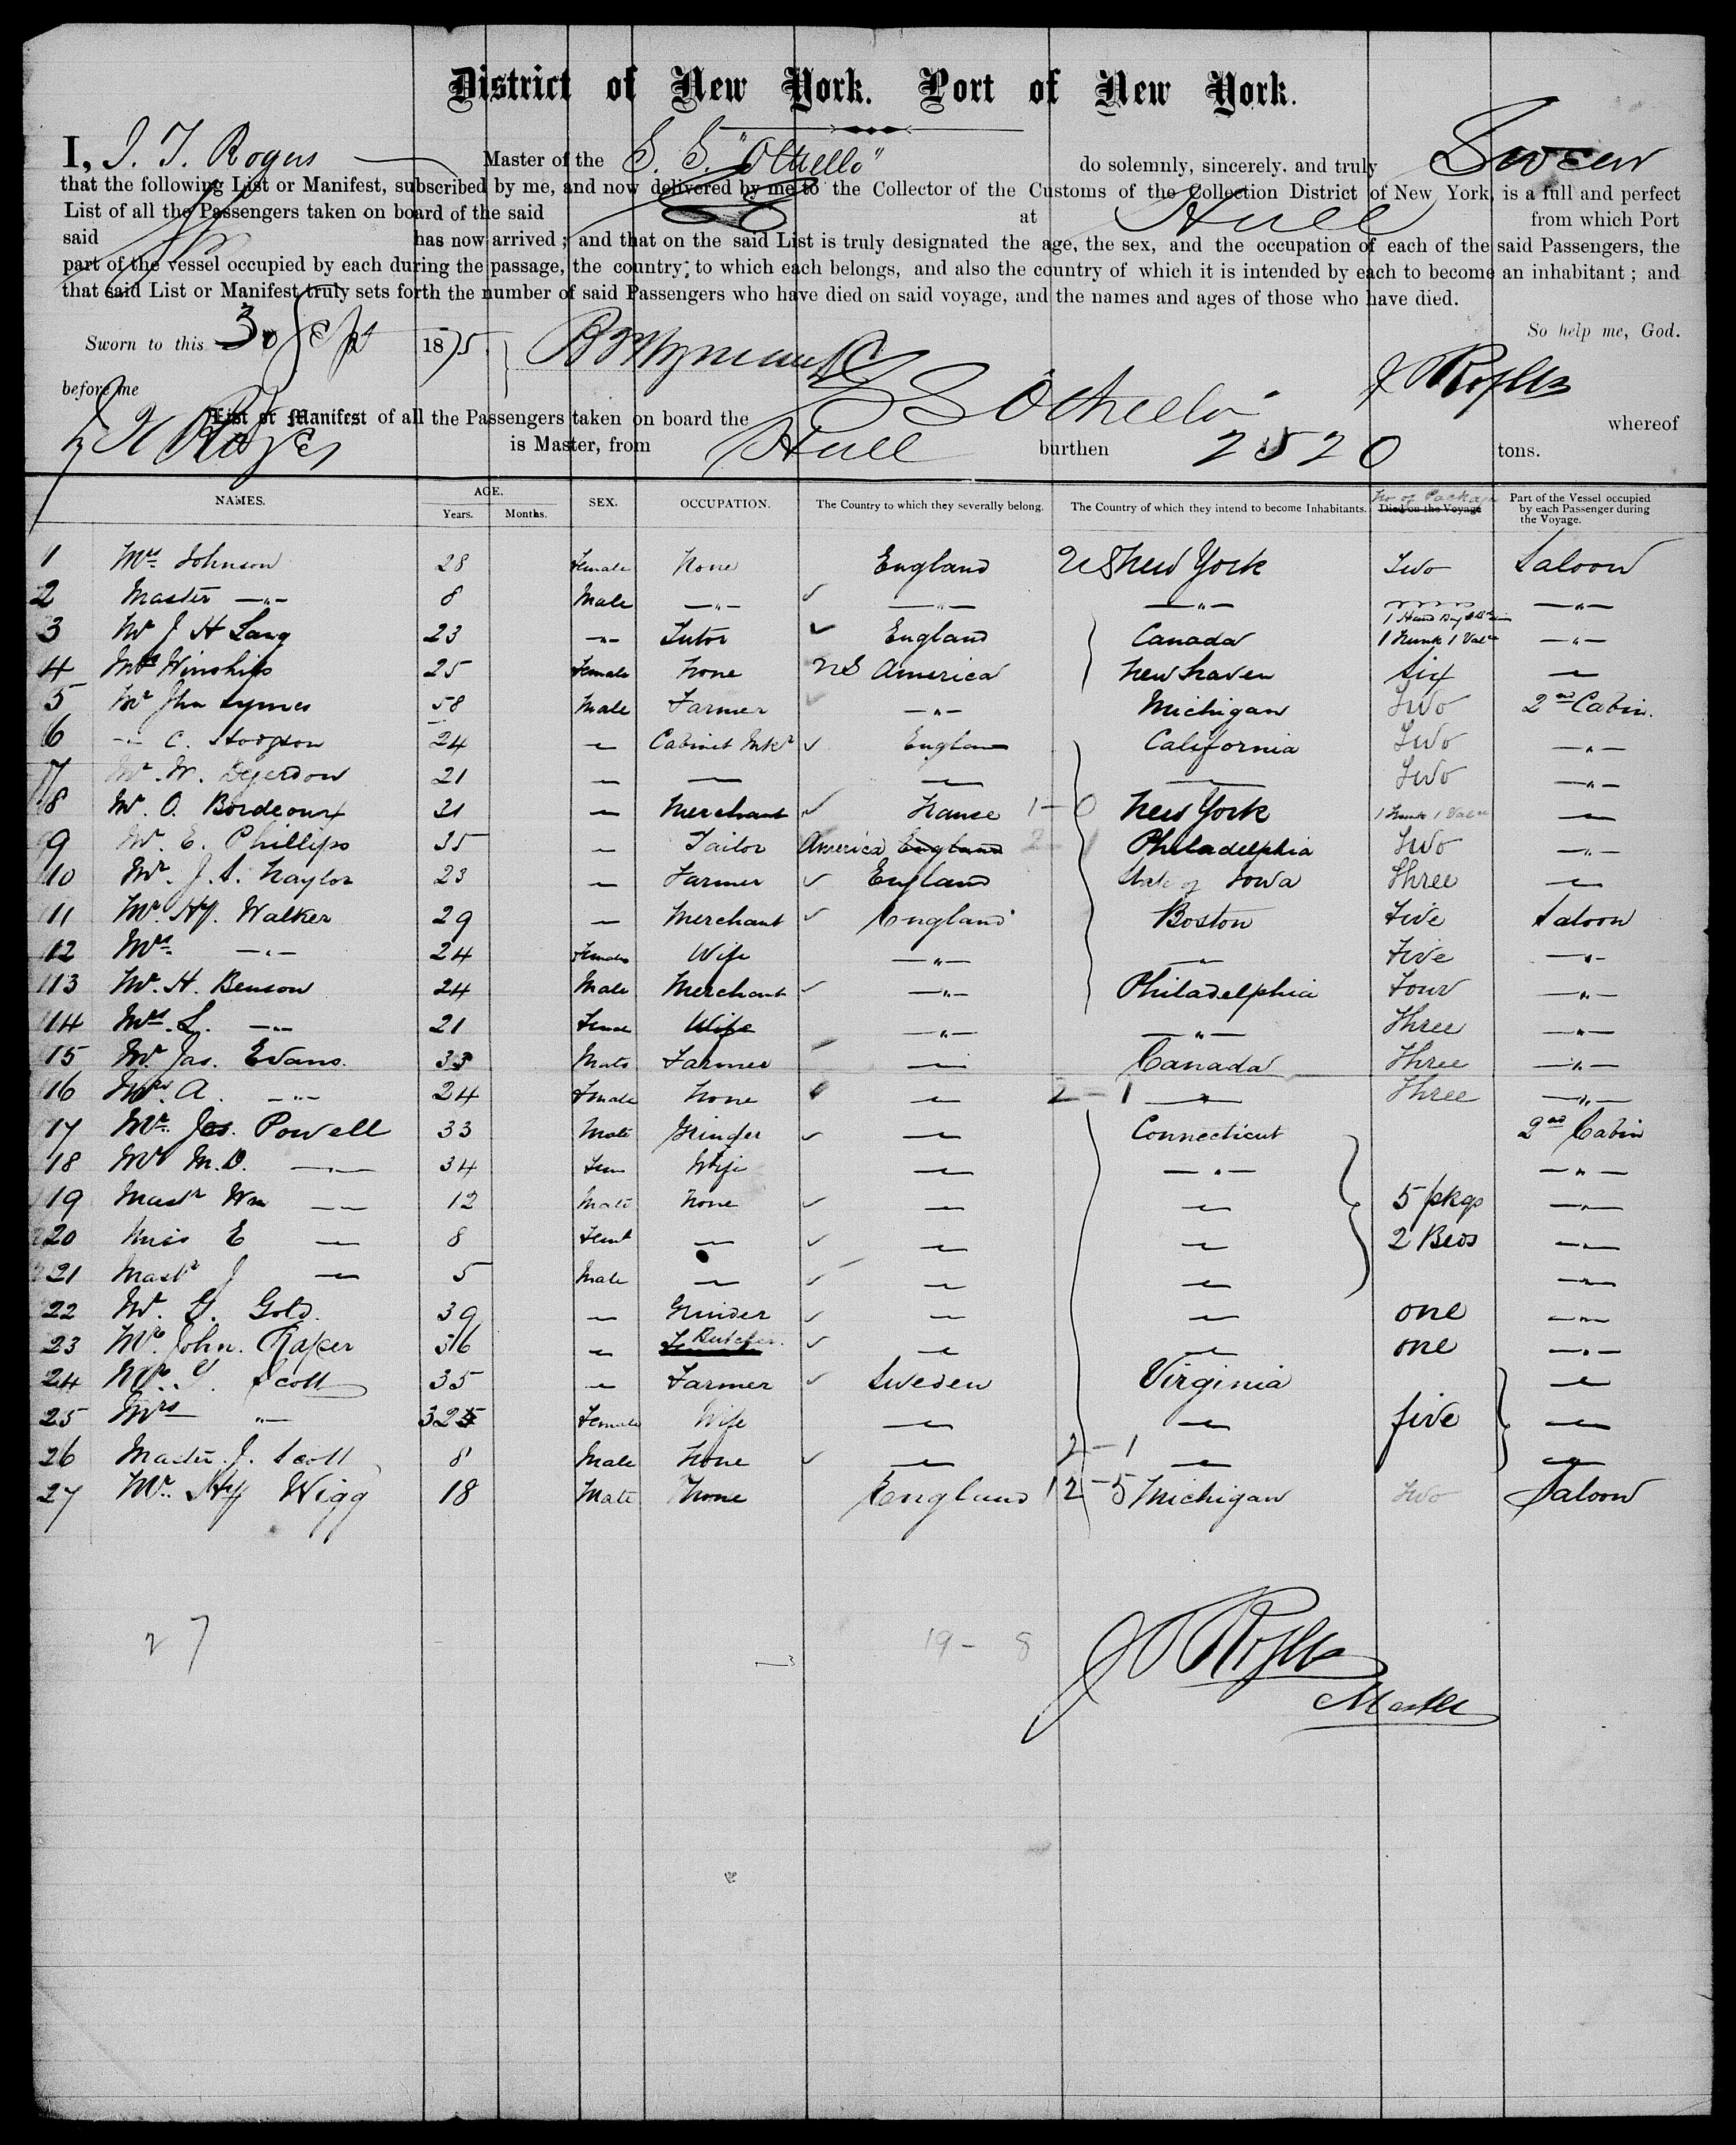 District of New York. Port of New York.
I, J. T. Rogers Master of the S. S. "Othello" do solemnly, sincerely. and truly Swear
that the following List or Manifest, subscribed by me, and now delivered by me to the Collector of the Customs of the Collection District of New York, is a full and perfect
List of all the Passengers taken on board of the said at Hull from which Port
said has now arrived ; and that on the said List is truly designated the age, the sex, and the occupation of each of the said Passengers, the
part of the vessel occupied by each during the passage, the country; to which each belongs, and also the country of which it is intended by each to become an inhabitant ; and
that said List or Manifest truly sets forth the number of said Passengers who have died on said voyage, and the names and ages of those who have died.
So help me, God.
Sworn to this 30 Sept 1875
before me
List or Manifest of all the Passengers taken on board the S S Othello whereof
is Master, from Hull burthen 2520 tons.
NAMES. AGE. Years. Months. SEX. OCCUPATION. The Country to which they severally belong. The Country of which they intend to become Inhabitants. No of Package Died on the Voyage Part of the Vessel occupied by each Passenger during the Voyage.
1 Mrs Johnson 28 Female None England US New York Two Saloon
2 Master —"— 8 Male —"— —"— —"— —"—
3 Mr J H Lang 23 —"— Tutor England Canada 1 Trunk 1 Valse —"—
4 Mrs Winship 25 Female None US America New Haven Six —
5 Mr Jhn Symes 58 Male Farmer —"— Michigan Two 2nd Cabin.
6 —"— C. Hodgson 24 — Cabinet Mkr England California Two —"—
7 Mr. W. 21 — — — — Two —"—
8 Mr. O. Bordeoux 21 — Merchant France 1-0 New York 1 Trunk 1 Valse —
9 Mr. E. Phillips 35 — Tailor America England Philadelphia Two —"—
10 Mr. J. S. Naylor 23 — Farmer England State of Iowa Three —
11 Mr. Hy. Walker 29 — Merchant England Boston Five Saloon
12 Mrs. —"— 24 Female Wife —"— —"— Five —"—
13 Mr. H. Benson 24 Male Merchant —"— Philadelphia Four —"—
14 Mrs. L. —"— 21 Female Wife —"— —"— Three —"—
15 Mr. Jas. Evans. 33 Male Farmer — Canada Three —"—
16 Mrs. A. —"— 24 Female None — 2-1 —"— Three —"—
17 Mr. Jos. Powell 33 Male Grinder — Connecticut 2nd Cabin
18 M. D. —"— 34 Fem Wife — —"— —"—
19 Mastr Wm —"— 12 Male None — — 5 pkgs —"—
20 Miss E — 8 Feml — — — 2 Beds —"—
21 Mastr J — 5 Male — — — —"—
22 Mr. G. Gold. 39 — Grinder — — one —"—
23 Mr. John. Raper 36 — Butcher. — — one —"—
24 Mr. G. Scott 35 — Farmer Sweden Virginia —
25 Mrs —"— 32 Female Wife — — five —
26 Master. J. Scott 8 Male None — 2-1 — —
27 Mr. Hy Wigg 18 Male None England 12-5 Michigan Two Saloon
27 19 - 8
Master